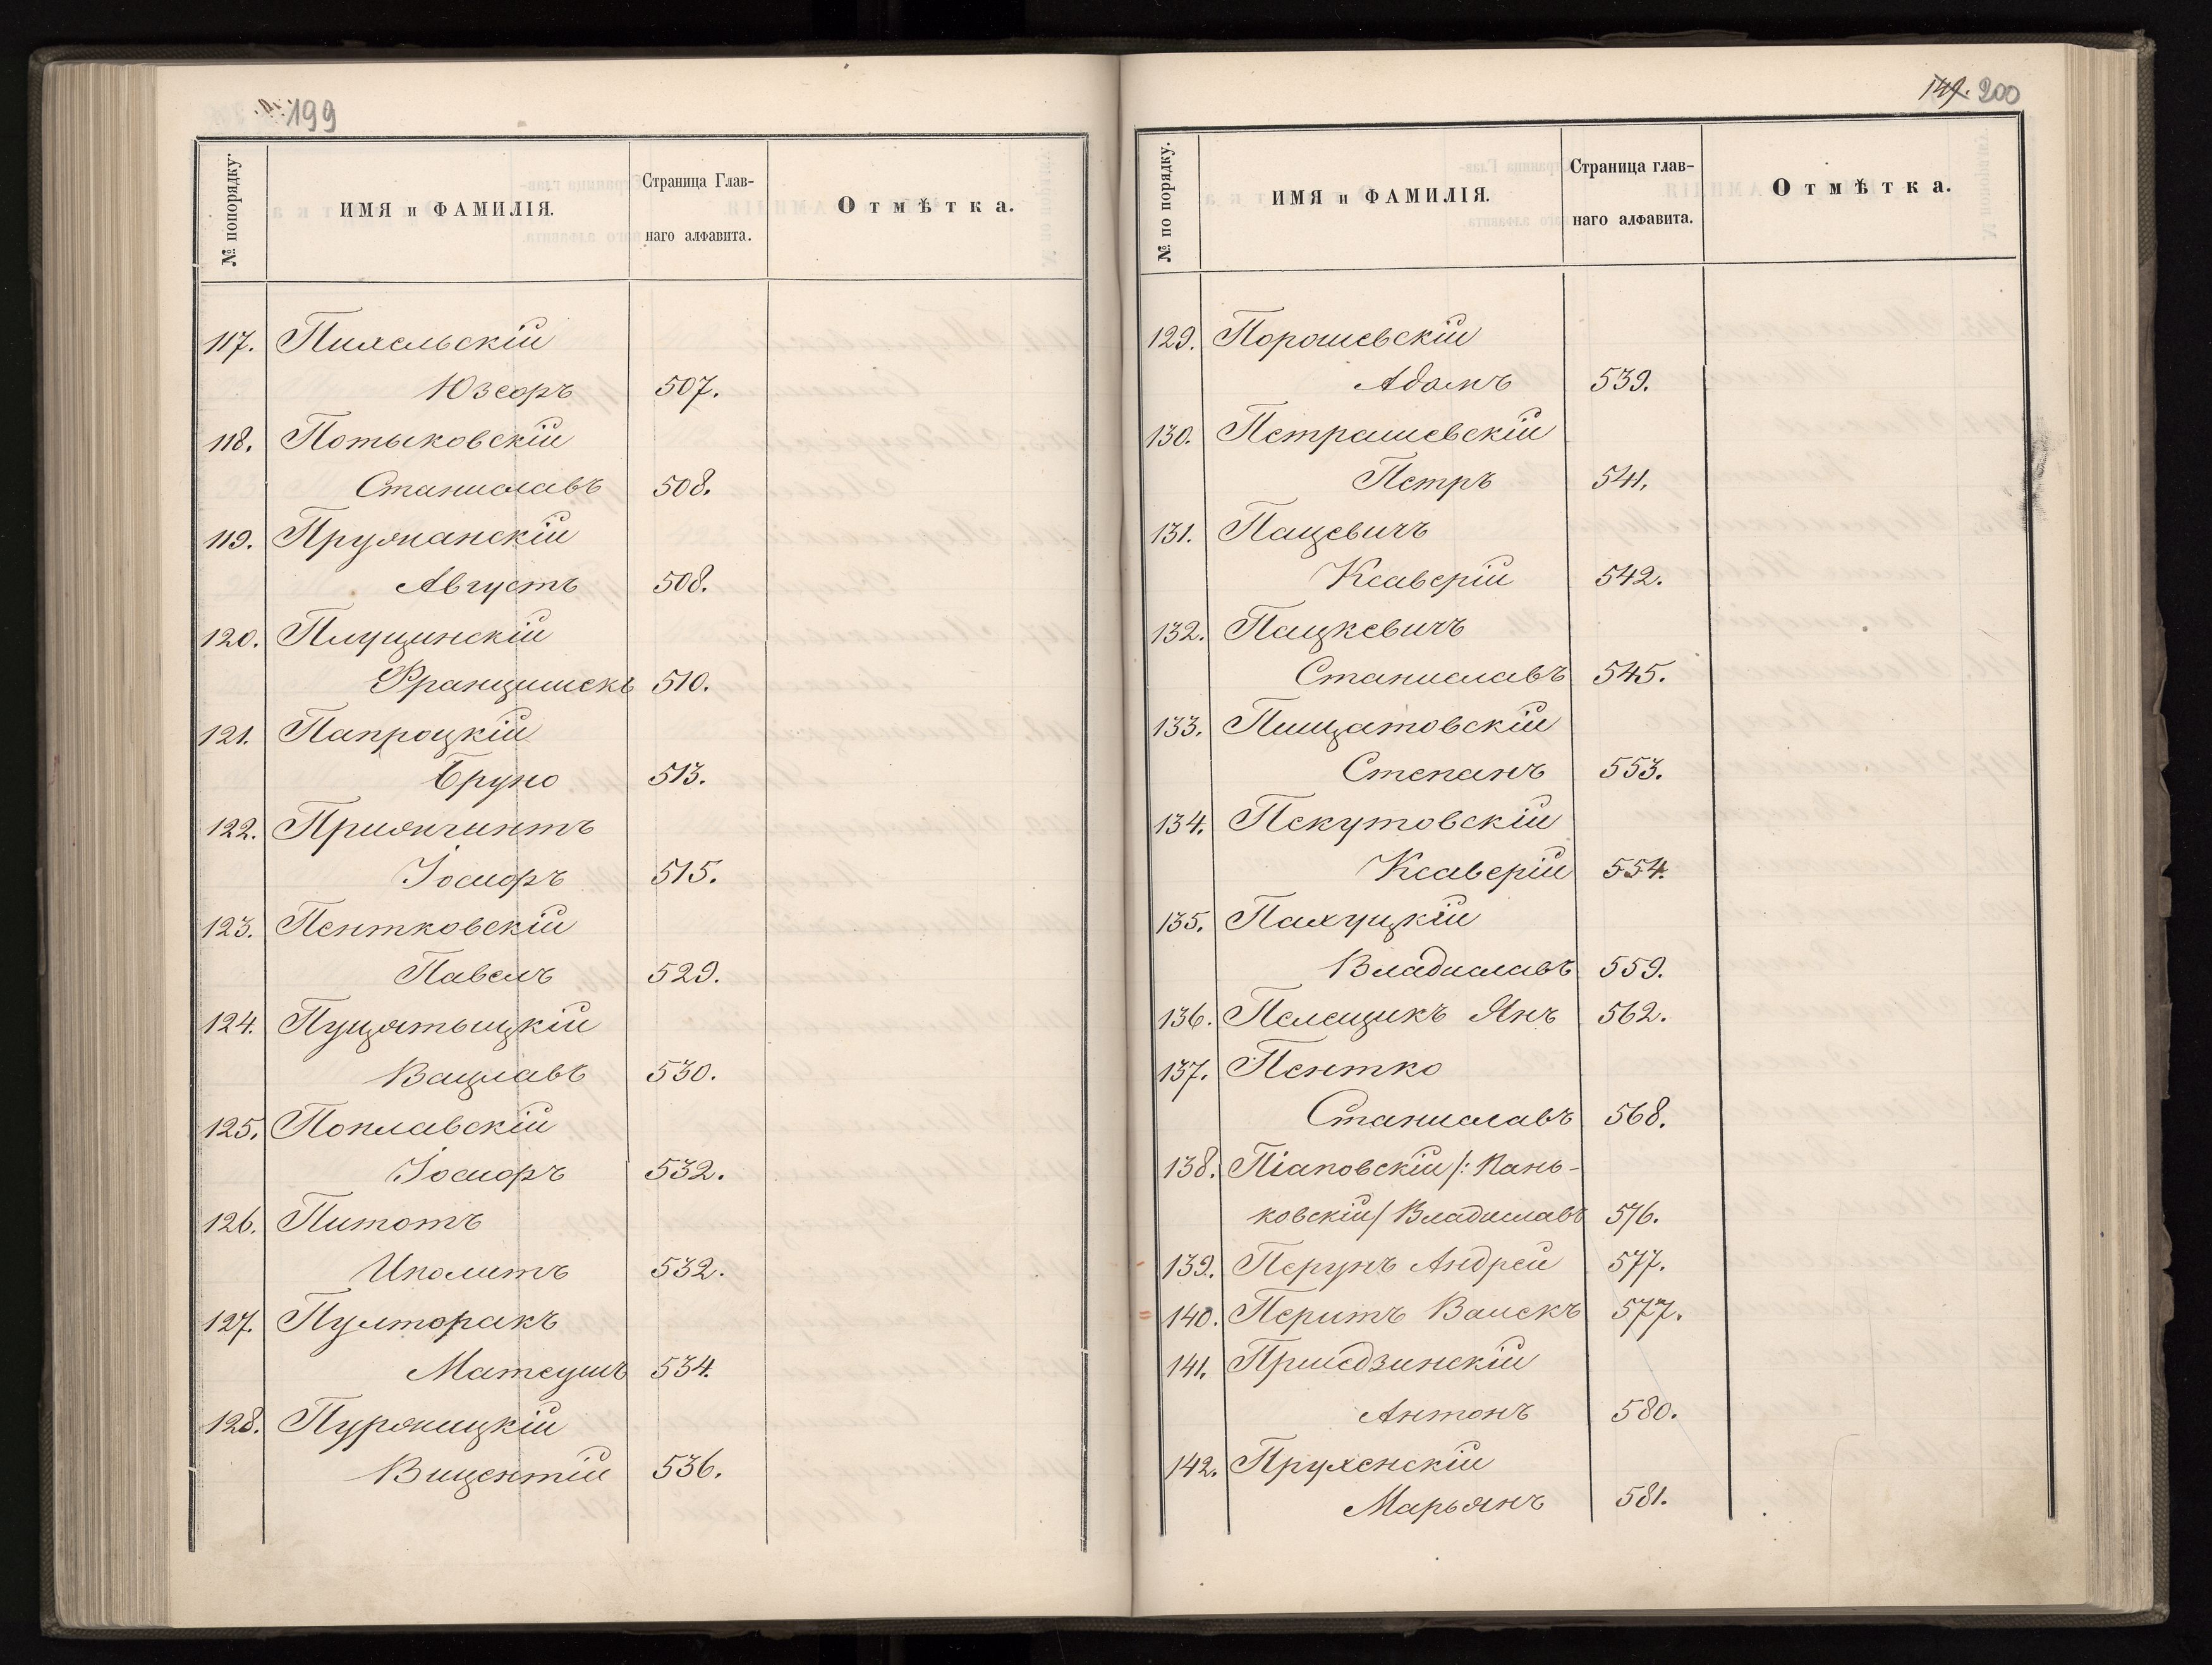 199
№ попорядку.
ИМЯ и ФАМИЛІЯ.
Страница Глав-
наго алфавита.
Отмѣтка.
117. Пихельскій
Юзефъ 507.
118. Потыковскій
Станиславъ 508.
119. Пружанскій
Августъ 508.
120. Плущинскій
Францишекъ 510.
121. Папроцкій
Бруно 513.
122. Пріялгинтъ
Іосифъ 515.
123. Пентковскій
Павелъ 529.
124.
Вацлавъ 530.
125. Поплавскій
Іосифъ 532.
126. Питотъ
Иполитъ 532.
127. Пулторакъ
Матеушъ 534.
128.
Вицентій 536.
149. 200
№ по порядку.
ИМЯ и ФАМИЛІЯ.
Страница глав-
наго алфавита.
Отмѣтка.
129. Порошевскій
Адамъ 539.
130. Петрашевскій
Петръ 541.
131. Пацевичъ
Ксаверій 542.
132. Пацкевичъ
Станиславъ 545.
133. Пищатовскій
Степанъ 553.
134. Пекутовскій
Ксаверій 554.
135. Пахуцкій
Владиславъ 559.
136. Пелещикъ Янъ 562.
137. Пентко
Станиславъ 568.
138. Піаповскій /: Пань-
ковскій/ Владиславъ 576.
139. Перунъ Андрей 577.
140. Перитъ Валекъ 577.
141. Пришедзинскій
Антонъ 580.
142. Прухенскій
Марьянъ 581.